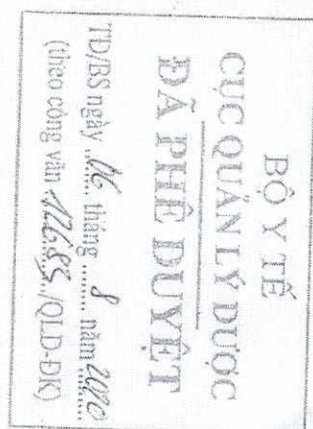 BỘ Y TẾ
CỤC QUẢN LÝ DƯỢC
ĐÃ PHÊ DUYỆT
TĐ/BS ngày 06 tháng 8 năm 2020
(theo công văn ........./QLD-ĐK)